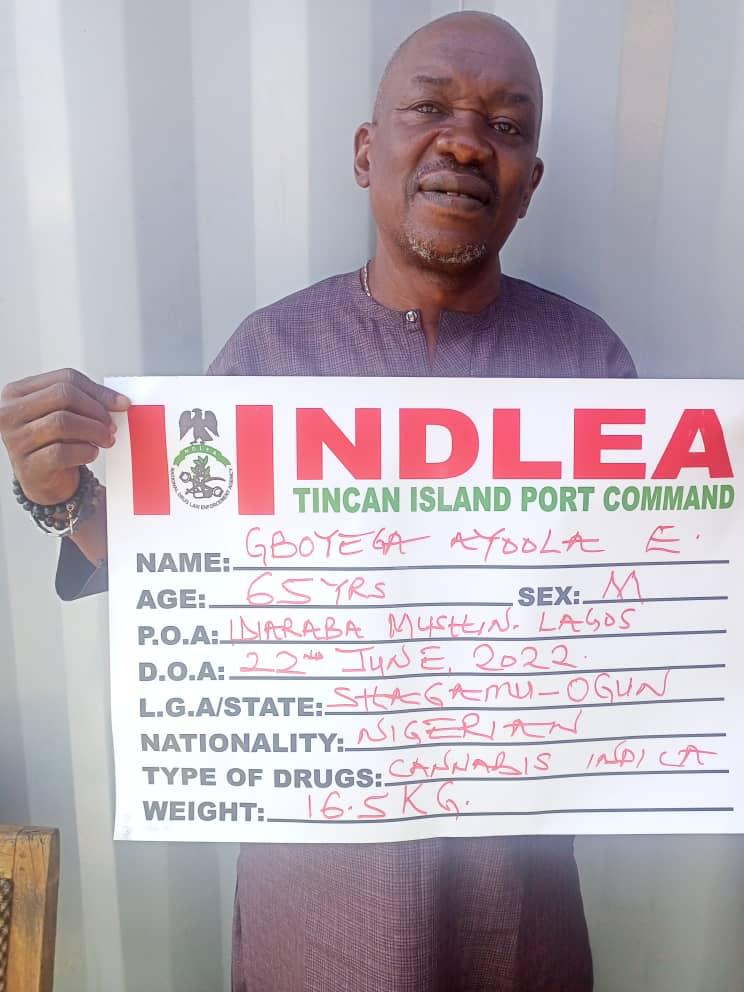 NDLEA
NDLEA
NATIONAL DRUG LAW ENFORCEMENT AGENCY
TINCAN ISLAND PORT COMMAND
NAME: GBOYEGA AYOOLA E.
AGE: 65 YRS SEX: M
P.O.A: IDIARABA MUSHIN. LAGOS
D.O.A: 22ND JUNE, 2022.
L.G.A/STATE: SHAGAMU-OGUN
NATIONALITY: NIGERIAN
TYPE OF DRUGS: CANNABIS INDICA
WEIGHT: 16.5KG.